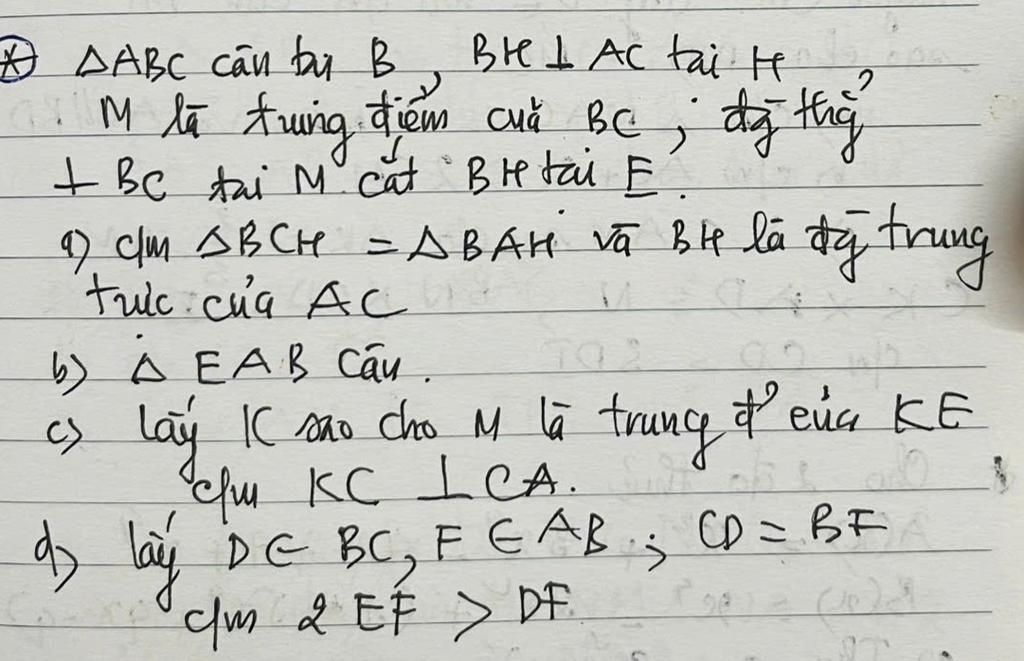 * ΔABC cân tại B, BH ⊥ AC tại H
M là trung điểm của BC ; đg thẳg
⊥ BC tại M cắt BH tại E.
a) c/m ΔBCH = ΔBAH và BH là đg trung
trực của AC
b) Δ EAB cân.
c) lấy K sao cho M là trung đ' của KE
c/m KC ⊥ CA.
d) lấy D ∈ BC, F ∈ AB ; CD = BF
c/m 2 EF > DF.